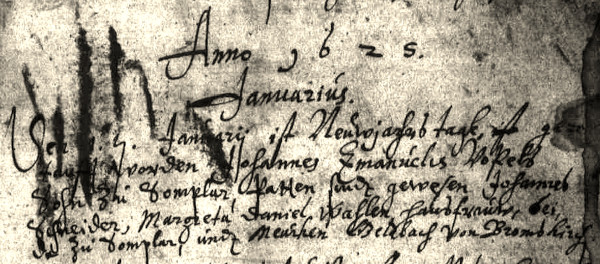 Anno 1625.
Januarius.
Den 1. Januarii ist Neuwjahrs tagk, ist
taufft worden Johannes Emanuelis
Sohn zu Somplar, Patten sindt gewesen Johannes
Schneider, Margreta, Daniel Wahlen haußfrauw, bei
de zu Somplar, undt Bellbach von Bromskirch